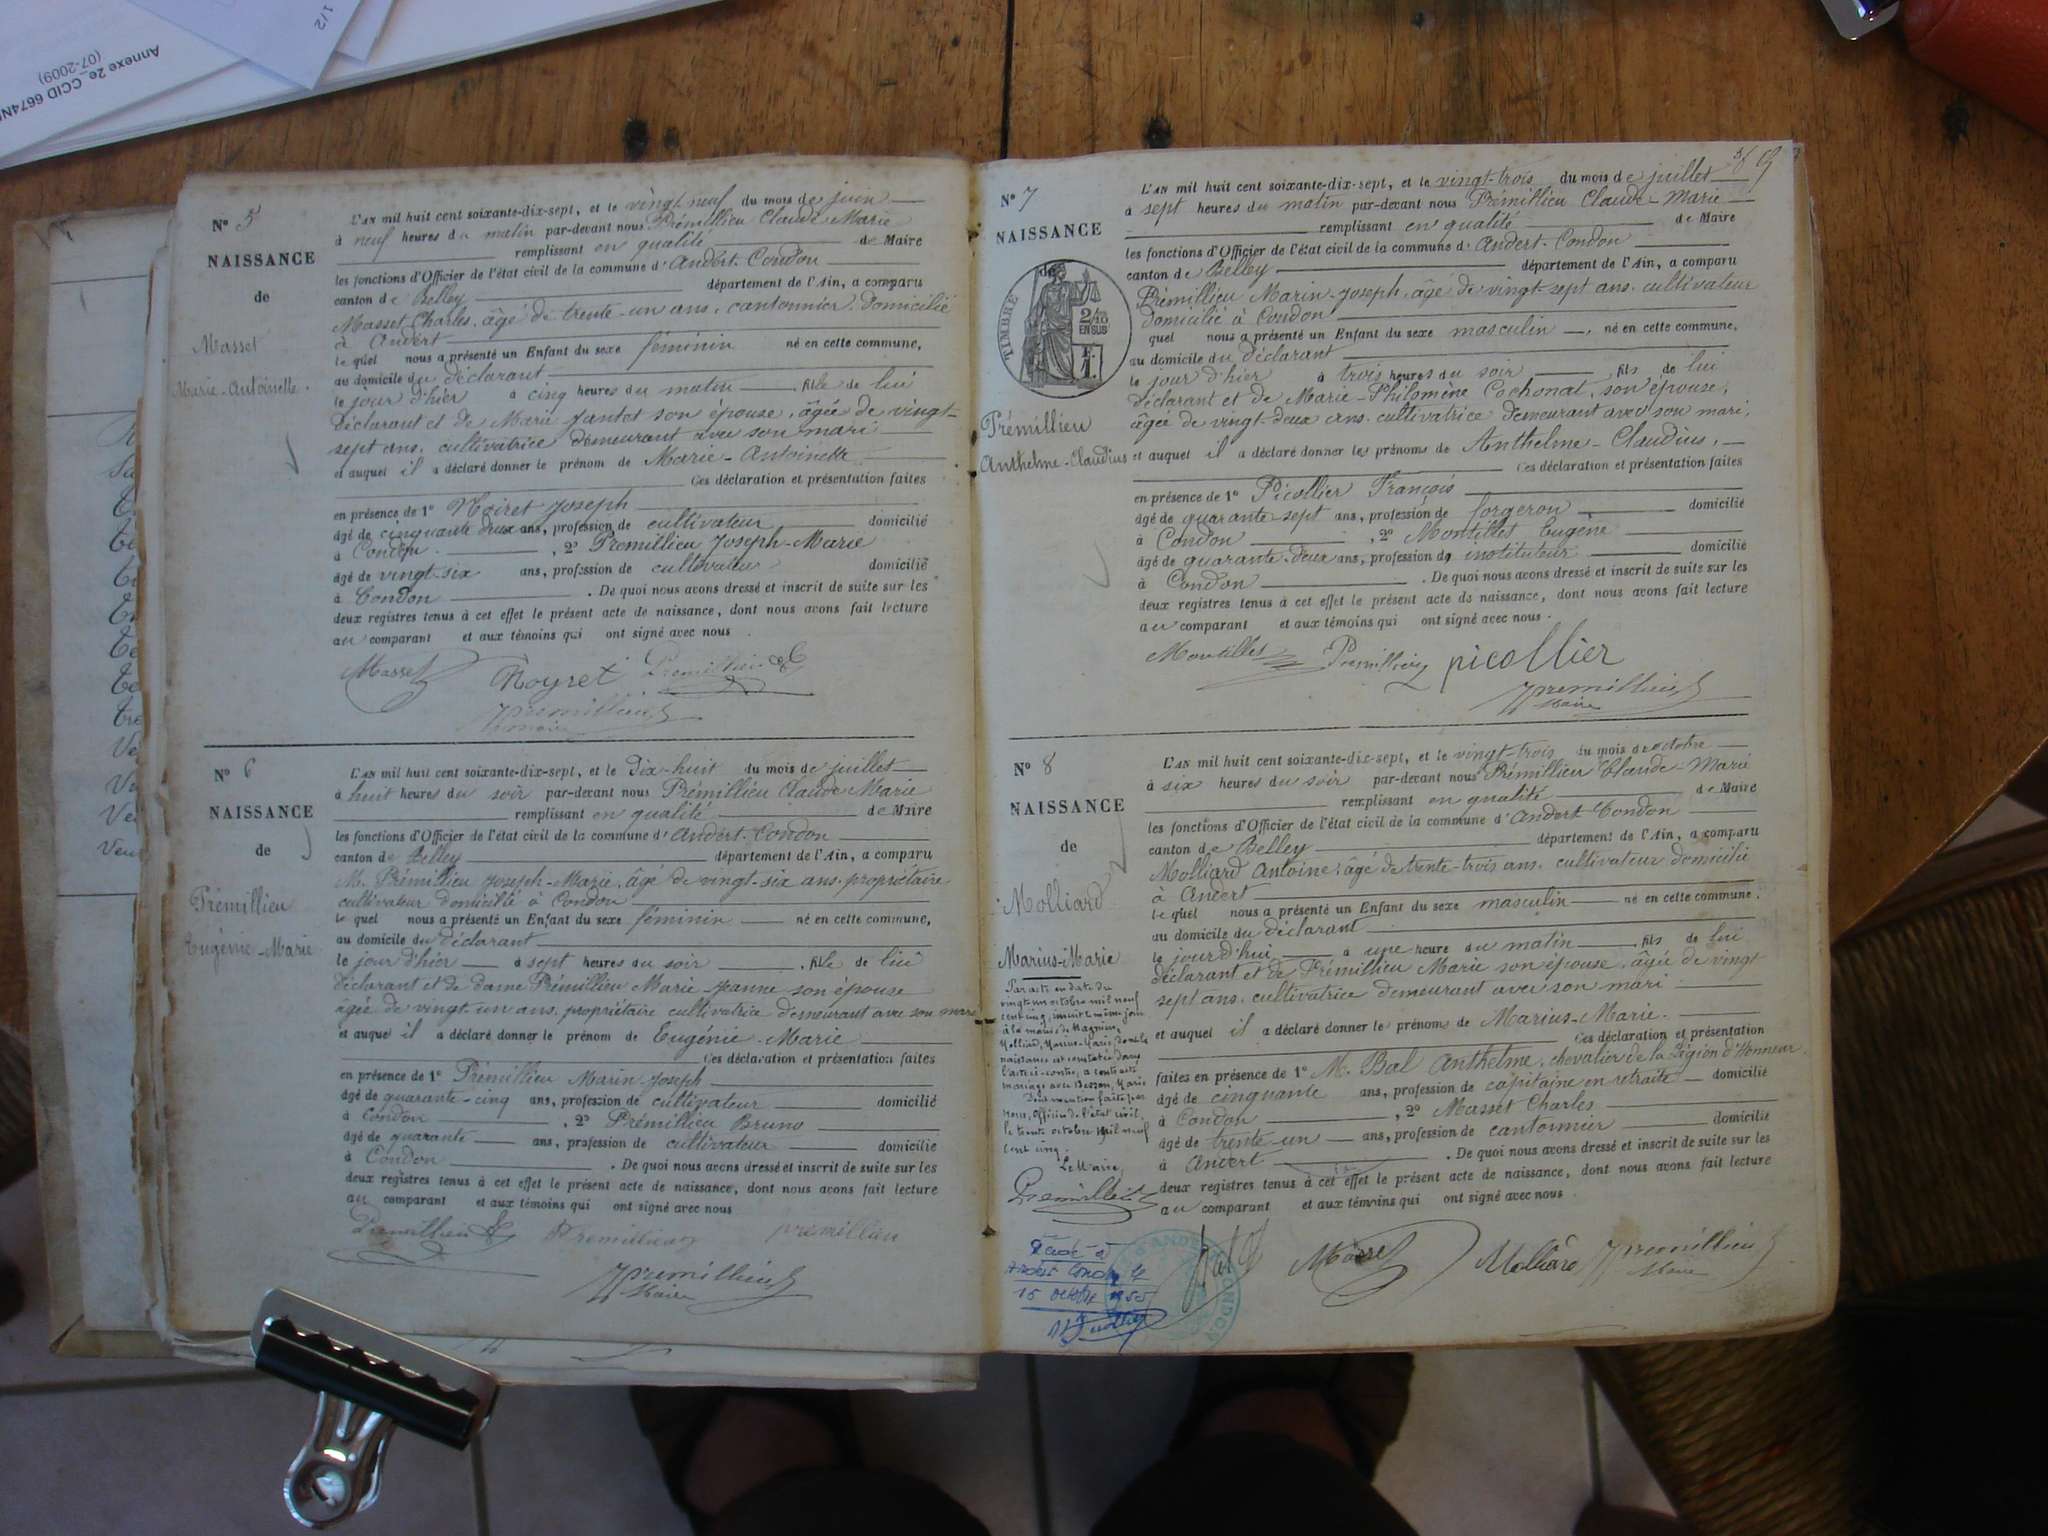 Annexe 2e_CCID 6674N
(07-2009)
1/2
N° 5
NAISSANCE
de
Masset
Marie-Antoinette.
L'AN mil huit cent soixante-dix-sept, et le vingt neuf du mois de juin
à neuf heures du matin par-devant nous Prémillieu Claude Marie
remplissant en qualité de Maire
les fonctions d'Officier de l'état civil de la commune d'Andert-Condon
canton de Belley département de l'Ain, a comparu
Masset Charles, âgé de trente-un ans, cantonnier, domicilié
à Andert
le quel nous a présenté un Enfant du sexe féminin né en cette commune,
au domicile du déclarant
le jour d'hier à cinq heures du matin, fille de lui
déclarant et de Marie Jantet son épouse, âgée de vingt-
sept ans, cultivatrice demeurant avec son mari
et auquel il a déclaré donner le prénom de Marie-Antoinette
Ces déclaration et présentation faites
en présence de 1° Noiret Joseph
âgé de cinquante deux ans, profession de cultivateur domicilié
à Condon, 2° Prémillieu Joseph-Marie
âgé de vingt-six ans, profession de cultivateur domicilié
à Condon. De quoi nous avons dressé et inscrit de suite sur les
deux registres tenus à cet effet le présent acte de naissance, dont nous avons fait lecture
au comparant et aux témoins qui ont signé avec nous.
Masset Noyret Premillieu
Premillieu
maire
N° 6
NAISSANCE
de
Prémillieu
Eugénie-Marie
L'AN mil huit cent soixante-dix-sept, et le Dix-huit du mois de juillet
à huit heures du soir par-devant nous Prémillieu Claude Marie
remplissant en qualité de Maire
les fonctions d'Officier de l'état civil de la commune d'Andert-Condon
canton de Belley département de l'Ain, a comparu
M. Prémillieu Joseph-Marie, âgé de vingt-six ans, propriétaire
cultivateur domicilié à Condon
le quel nous a présenté un Enfant du sexe féminin né en cette commune,
au domicile du déclarant
le jour d'hier à sept heures du soir, fille de lui
déclarant et de dame Prémillieu Marie-Jeanne son épouse
âgée de vingt-un ans, propriétaire cultivatrice demeurant avec son mari
et auquel il a déclaré donner le prénom de Eugénie-Marie
Ces déclaration et présentation faites
en présence de 1° Prémillieu Marin Joseph
âgé de quarante-cinq ans, profession de cultivateur domicilié
à Condon, 2° Prémillieu Bruno
âgé de quarante ans, profession de cultivateur domicilié
à Condon. De quoi nous avons dressé et inscrit de suite sur les
deux registres tenus à cet effet le présent acte de naissance, dont nous avons fait lecture
au comparant et aux témoins qui ont signé avec nous
Premillieu Premillieu premillieu
Premillieu
Maire
N° 7
NAISSANCE
de
TIMBRE
2/10
EN SUS
1 F.
Prémillieu
Anthelme-Claudius
L'AN mil huit cent soixante-dix-sept, et le vingt-trois du mois de juillet
à sept heures du matin par-devant nous Prémillieu Claude-Marie
remplissant en qualité de Maire
les fonctions d'Officier de l'état civil de la commune d'Andert-Condon
canton de Belley département de l'Ain, a comparu
Prémillieu Marin-Joseph, âgé de vingt-sept ans, cultivateur
domicilié à Condon
quel nous a présenté un Enfant du sexe masculin, né en cette commune,
au domicile du déclarant
le jour d'hier à trois heures du soir, fils de lui
déclarant et de Marie-Philomène Cochonat, son épouse,
âgée de vingt-deux ans, cultivatrice demeurant avec son mari,
et auquel il a déclaré donner les prénoms de Anthelme-Claudius,
Ces déclaration et présentation faites
en présence de 1° Picollier François
âgé de quarante-sept ans, profession de forgeron domicilié
à Condon, 2° Montillet Eugène
âgé de quarante-deux ans, profession de instituteur domicilié
à Condon. De quoi nous avons dressé et inscrit de suite sur les
deux registres tenus à cet effet le présent acte de naissance, dont nous avons fait lecture
au comparant et aux témoins qui ont signé avec nous.
Montillet Premillieu picollier
Premillieu
Maire
N° 8
NAISSANCE
de
Molliard
Marius-Marie
Par acte en date du
vingt un octobre mil neuf
cent cinq, inscrit le même jour
à la mairie de Magnieu,
Molliard, Marius-Marie, dont la
naissance est constatée dans
l'acte ci-contre, a contracté
mariage avec Besson, Marie
Dont mention faite par
nous, officier de l'état civil
le trente octobre mil neuf
cent cinq.
Le Maire,
Premillieu
L'AN mil huit cent soixante-dix-sept, et le vingt-trois du mois d'octobre
à six heures du soir par-devant nous Prémillieu Claude-Marie
remplissant en qualité de Maire
les fonctions d'Officier de l'état civil de la commune d'Andert-Condon
canton de Belley département de l'Ain, a comparu
Molliard Antoine, âgé de trente-trois ans, cultivateur domicilié
à Andert
le quel nous a présenté un Enfant du sexe masculin né en cette commune.
au domicile du déclarant
le jour d'hui à une heure du matin, fils de lui
déclarant et de Prémillieu Marie son épouse, âgée de vingt
sept ans, cultivatrice demeurant avec son mari
et auquel il a déclaré donner les prénoms de Marius-Marie.
Ces déclaration et présentation
faites en présence de 1° M. Bal Anthelme, chevalier de la Légion d'Honneur,
âgé de cinquante ans, profession de capitaine en retraite domicilié
à Condon, 2° Masset Charles
âgé de trente-un ans, profession de cantonnier domicilié
à Andert. De quoi nous avons dressé et inscrit de suite sur les
deux registres tenus à cet effet le présent acte de naissance, dont nous avons fait lecture
au comparant et aux témoins qui ont signé avec nous.
Bal Masset Molliard Premillieu
Maire
15 octobre